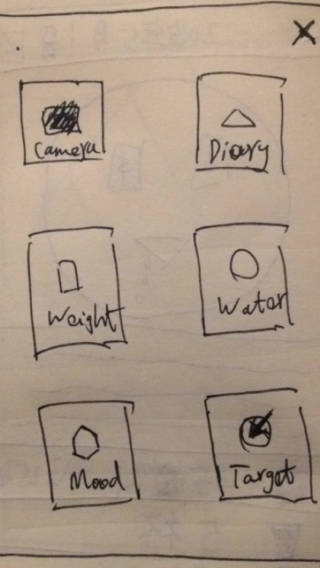 X
Camera
Diary
Weight
Water
Mood
Target